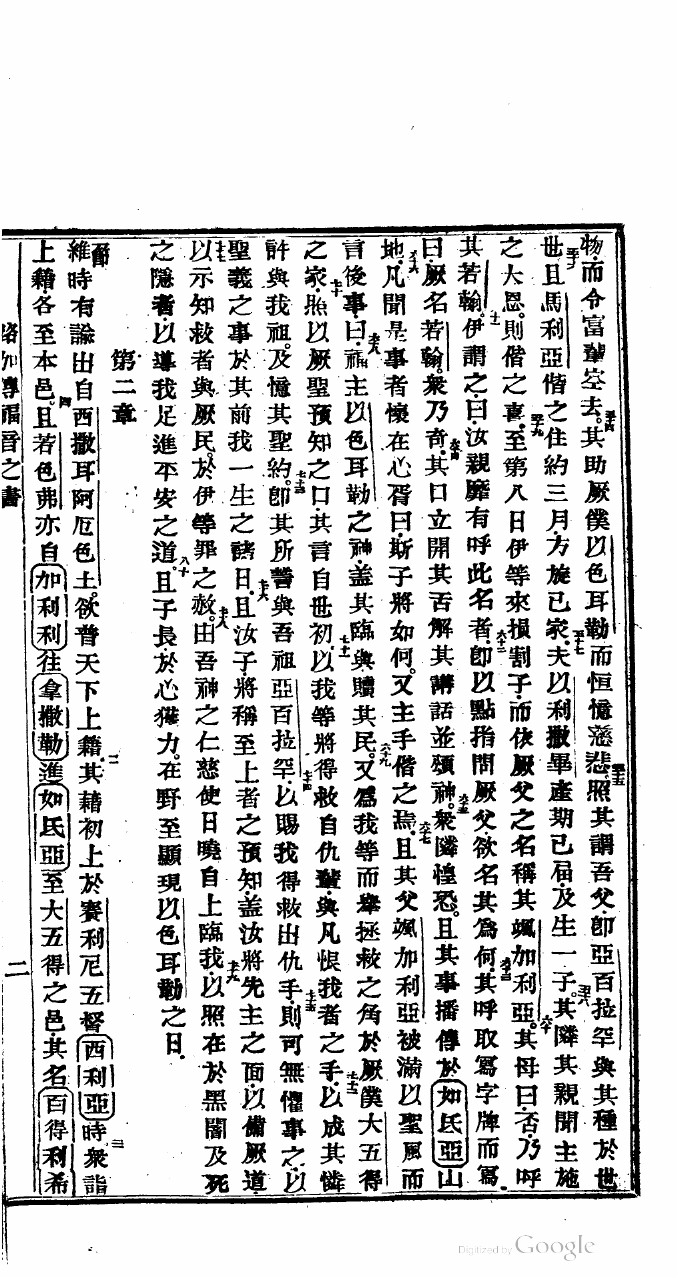 物而令富輩空去其助厥僕以色耳勒而恒憶慈悲照其謂吾父卽亞百拉罕與其種於世
世且馬利亞偕之住約三月方旋已家夫以利撒畢產期已屆及生一子其隣其親聞主施
之大恩則偕之喜至第八日伊等來損割子而依厥父之名稱其颯加利亞其母曰否乃呼
其若翰伊謂之曰汝親靡有呼此名者卽以點指問厥父欲名其爲何其呼取寫字牌而寫
曰厥名若翰衆乃奇其口立開其舌解其講話並頌神衆隣惶恐且其事播傳於如氐亞山
地凡聞是事者懷在心胥曰斯子將如何又主手偕之焉且其父颯加利亞被滿以聖風而
言後事曰福主以色耳勒之神盖其臨與贖其民又爲我等而舉拯救之角於厥僕大五得
之家照以厥聖預知之口其言自世初以我等將得救自仇輩與凡恨我者之手以成其憐
許與我祖及憶其聖約卽其所誓與吾祖亞百拉罕以賜我得救出仇手則可無懼事之以
聖義之事於其前我一生之諸日且汝子將稱至上者之預知盖汝將先主之面以備厥道
以示知救者與厥民於伊等罪之赦由吾神之仁慈使日曉自上臨我以照在於黑闇及死
之隱者以導我足進平安之道且子長於心獲力在野至顯現以色耳勒之日
第二章
節維時有諭出自西撒耳阿厄色土欲普天下上籍其藉初上於賽利尼五督西利亞時衆詣
上籍各至本邑且若色弗亦自加利利往拿撒勒進如氐亞至大五得之邑其名百得利希
路加專福音之書
二
Digitized by Google